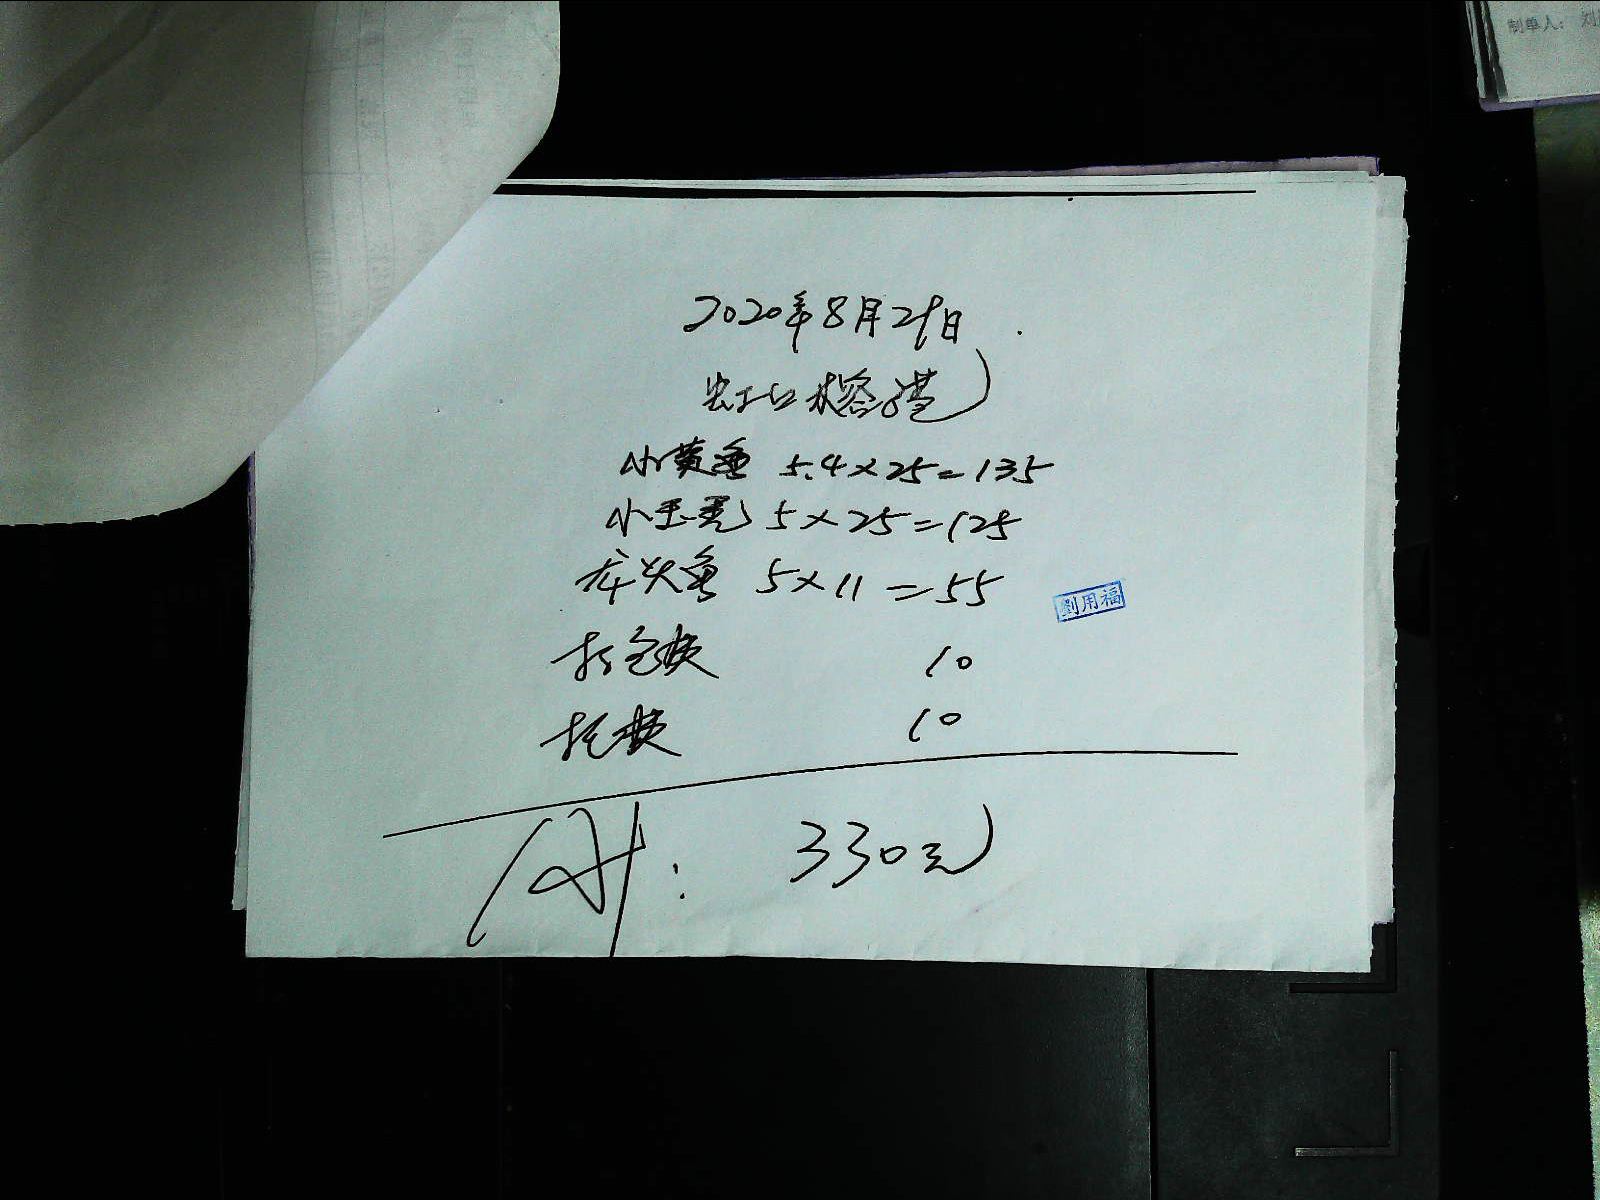 制单人:
2020年8月29日
小黄鱼 5.4×25=135
小玉秃 5×25=125
龙头鱼 5×11=55
劉用福
打包费 10
托费 10
合计: 330元